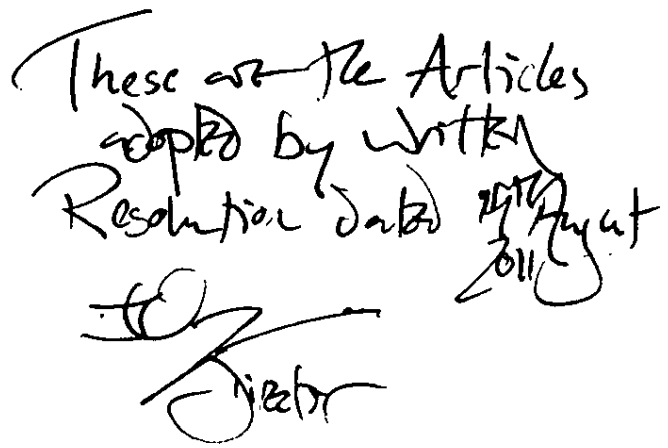 These are the Articles
adopted by written
Resolution dated August
2011
Director